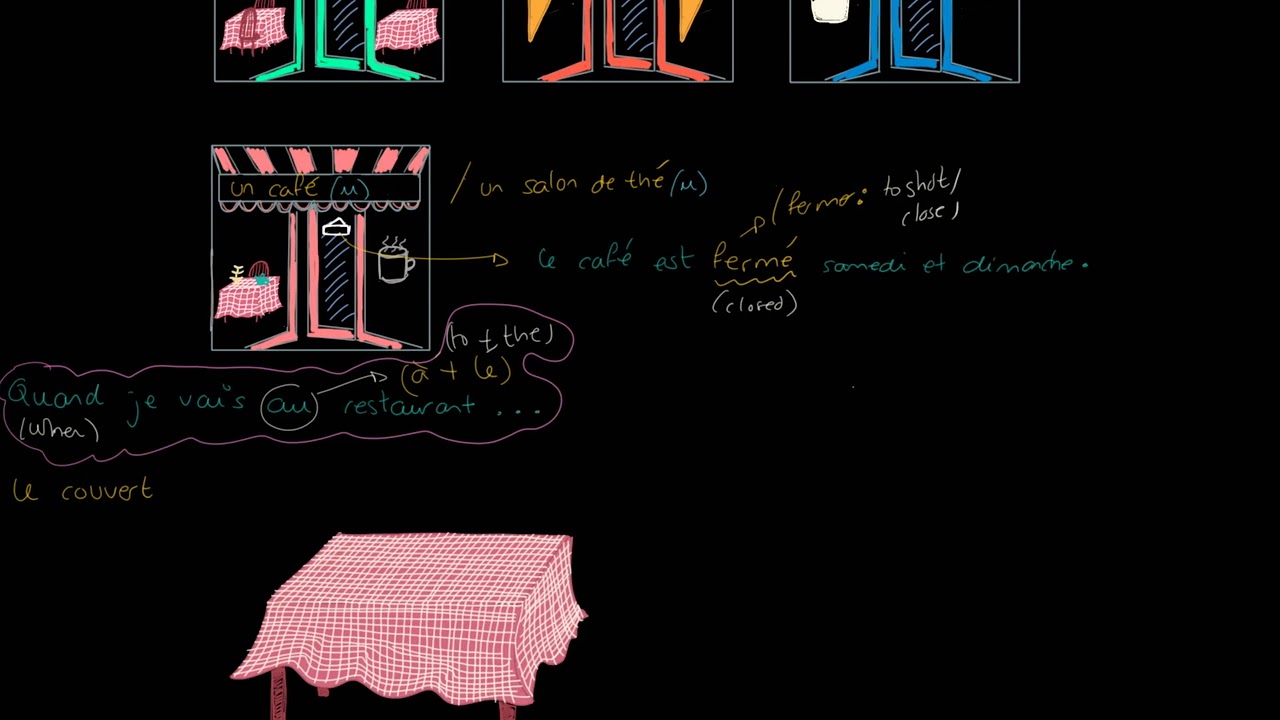 un café (m)
/ un salon de thé (m)
(fermer: to shut/
close)
Le café est fermé samedi et dimanche.
(closed)
(to + the)
(à + le)
Quand je vais au restaurant ...
(when)
Le couvert